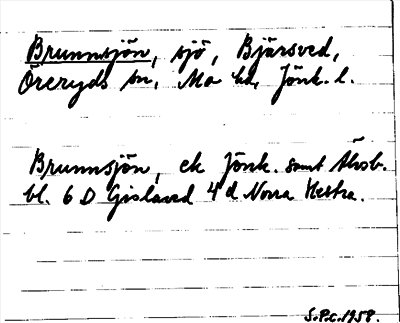 Brunnsjön, sjö, Bjärsved,
Öreryds sn, Mo hd, Jönk. l.
Brunnsjön, ek Jönk. samt Älvsb.
bl. 6 D Gislaved 4 d Norra Hestra.
S.P.C. 1958.